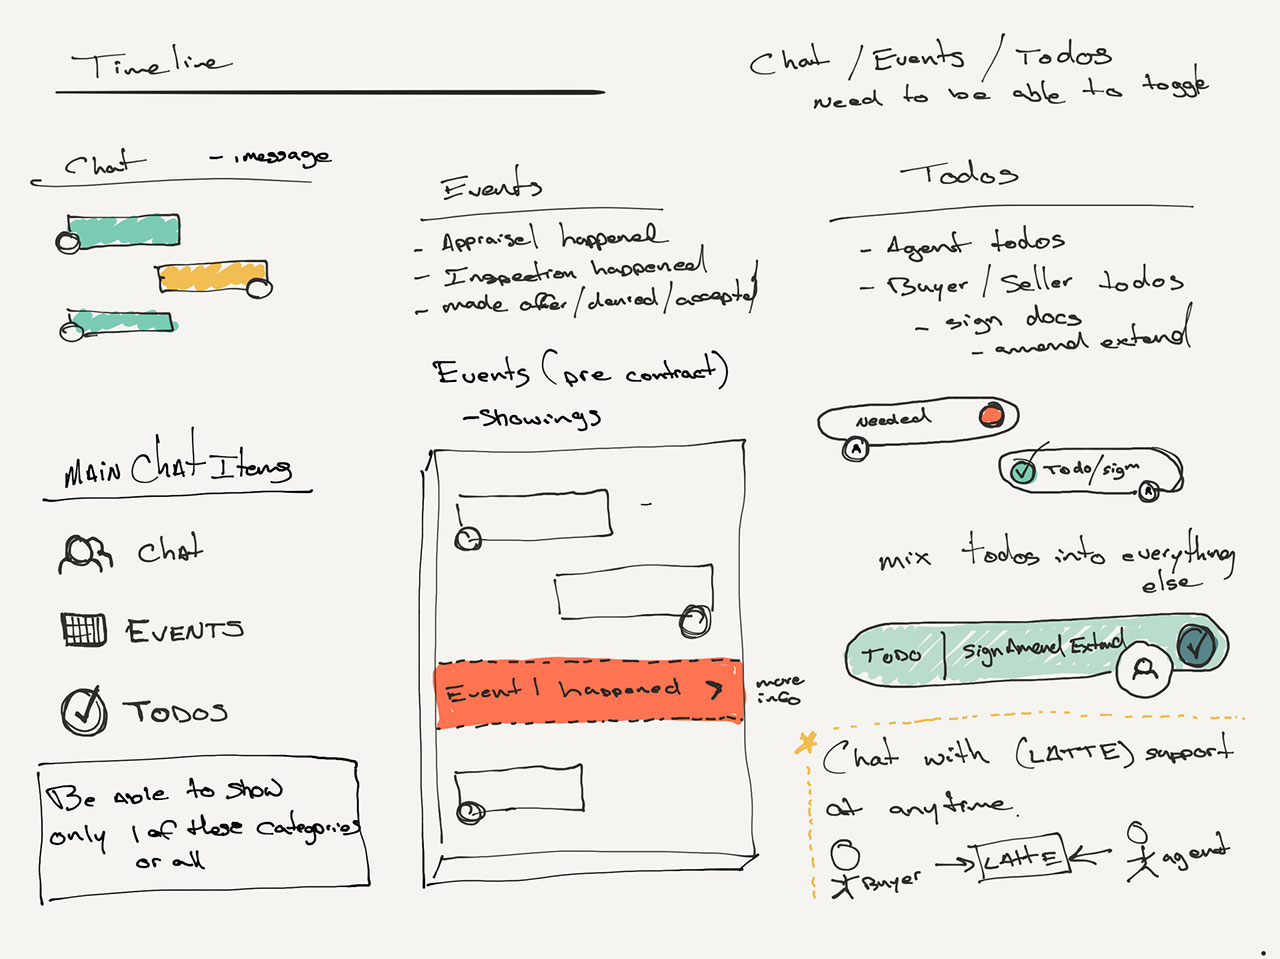 Timeline
Chat / Events / Todos
need to be able to toggle
Chat - imessage
Events
- Appraisel happened
- Inspection happened
- made offer/denied/accepted
Events (pre contract)
- Showings
Todos
- Agent todos
- Buyer / Seller todos
- sign docs
- amend extend
Needed
A
Todo/sign
A
mix todos into everything
else
TODO | Sign Amend Extend
MAIN CHAT Items
Chat
EVENTS
TODOS
Be able to show
only 1 of these categories
or all
Event 1 happened >
more
info
Chat with (LATTE) support
at anytime.
Buyer
LATTE
agent